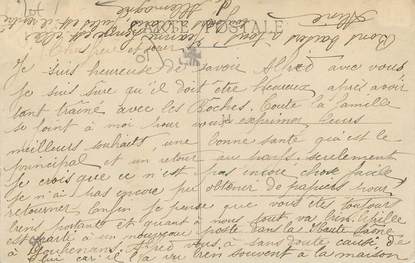 CARTE POSTALE
Cher frère et sœur
Je suis heureuse de savoir Alfred avec vous
Je suis sure qu'il doit être heureux après avoir
tant trainé avec les Boches. Toute la famille
se joint à moi pour vous exprimer leurs
meilleurs souhaits une bonne santé qui est le
principal et un retour au pays. seulement
Je crois que ce n'est pas encore chose facile
Je n'ai pas encore pu obtenir de papiers pour
retourner enfin je pense que vous etes toujours
bien portants et quant à nous tout va bien.
est à un nouveau poste dans la Haute Saône
à Alfred vous à sans doute causé de
lui car il l'a vu bien souvent à la maison
Bons à tous